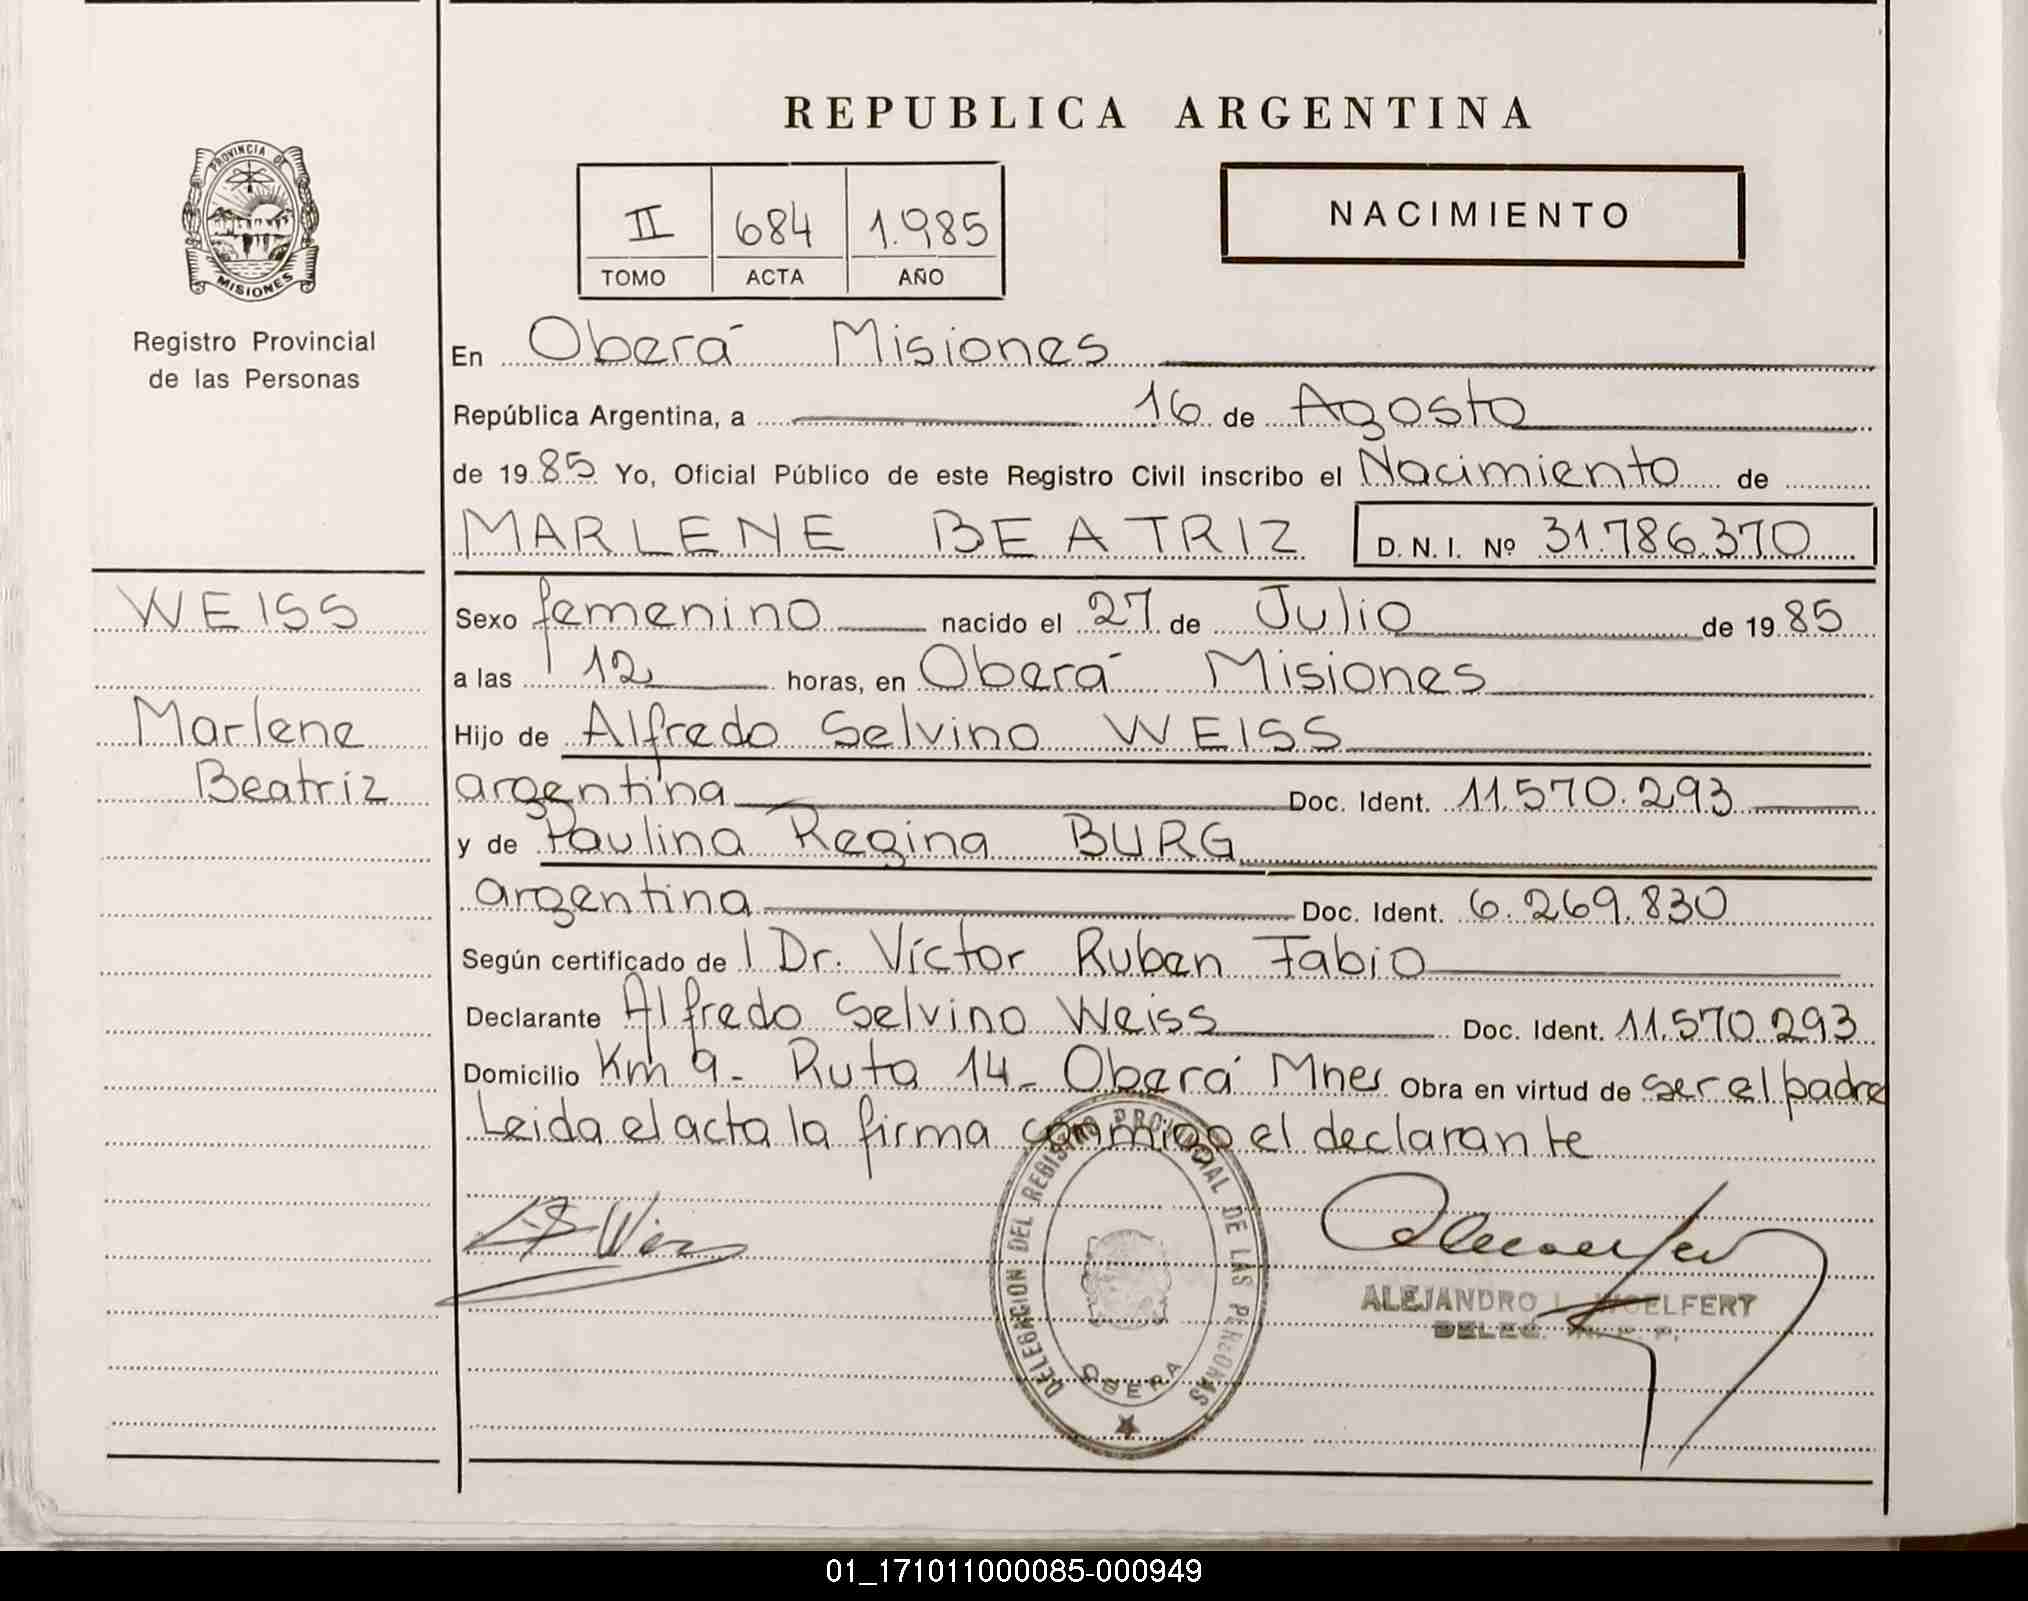 REPUBLICA ARGENTINA
PROVINCIA DE
MISIONES
Registro Provincial
de las Personas
II 684 1.985
TOMO ACTA AÑO
NACIMIENTO
En Oberá Misiones
República Argentina, a 16 de Agosto
de 1985 Yo, Oficial Público de este Registro Civil inscribo el Nacimiento de
MARLENE BEATRIZ D. N. I. Nº 31.786.370
WEISS
Marlene
Beatriz
Sexo femenino nacido el 27 de Julio de 1985
a las 12 horas, en Oberá Misiones
Hijo de Alfredo Selvino WEISS
argentina Doc. Ident. 11.570.293
y de Paulina Regina BURG
argentina Doc. Ident. 6.269.830
Según certificado de l Dr. Víctor Ruben Fabio
Declarante Alfredo Selvino Weiss Doc. Ident. 11.570.293
Domicilio Km 9 - Ruta 14 - Oberá Mnes Obra en virtud de ser el padre
Leida el acta la firma conmigo el declarante
DELEGACION DEL REGISTRO PROVINCIAL DE LAS PERSONAS
OBERA
ALEJANDRO WOELFERT
DELEG.
01_171011000085-000949